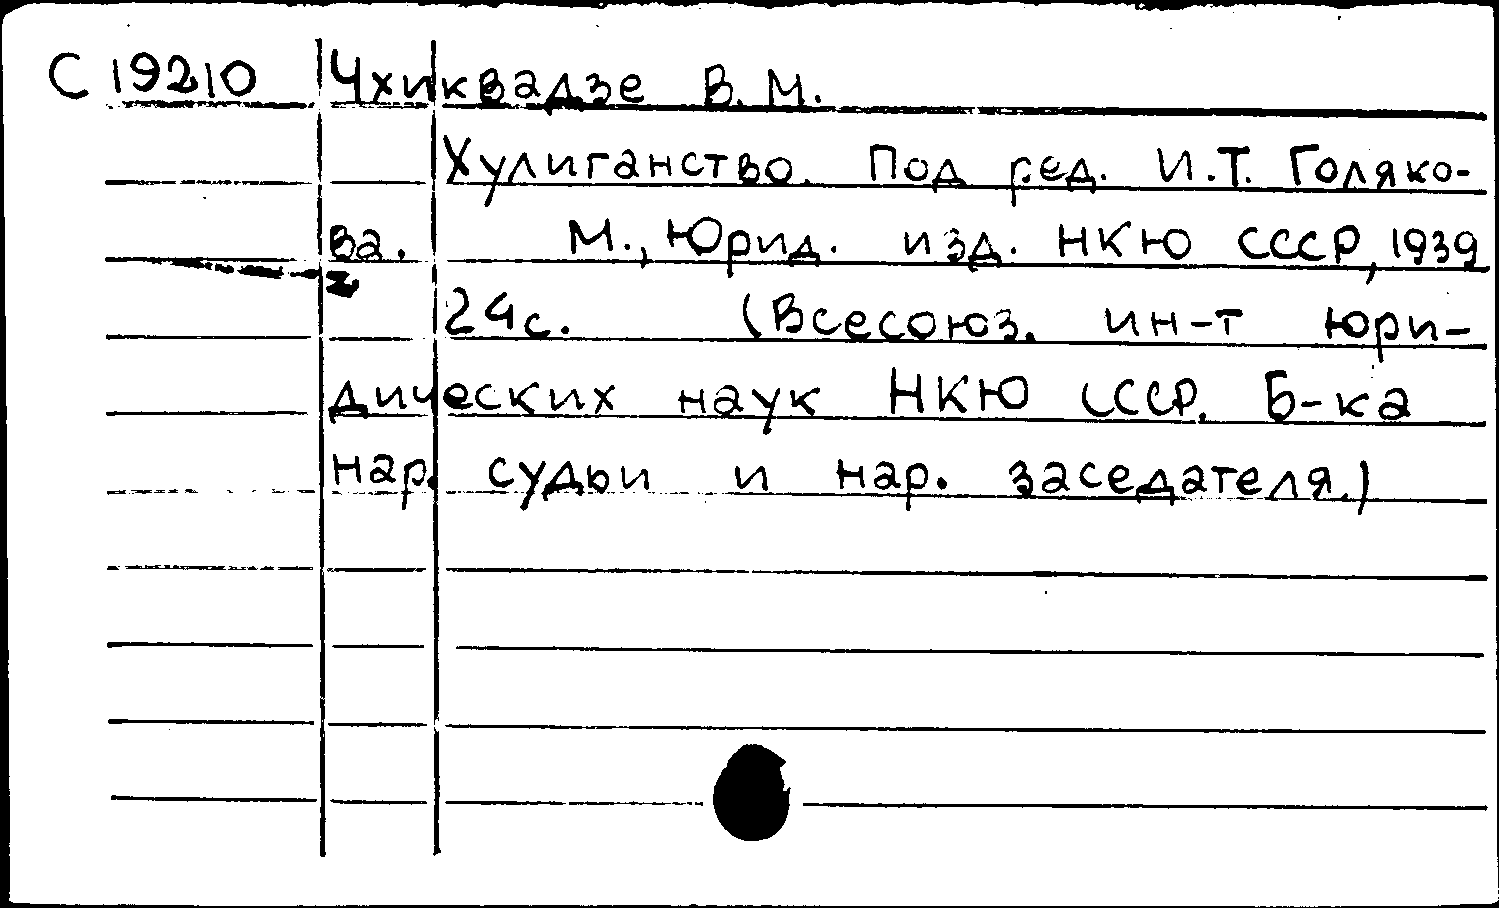 С 19210 Чхиквадзе В.М.
Хулиганство. Под ред. И.Т. Голяко-
ва. М., Юрид. изд. НКЮ СССР, 1939
24с. (Всесоюз. ин-т юри-
дических наук НКЮ СССР. Б-ка
нар. судьи и нар. заседателя.)